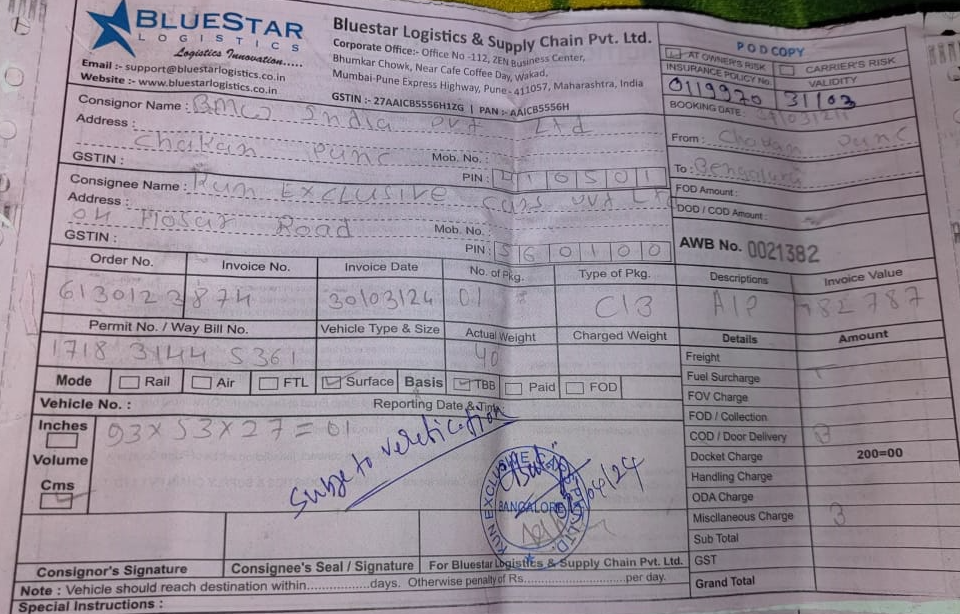 BLUESTAR
LOGISTICS
Logistics Innovation.....
Email :- support@bluestarlogistics.co.in
Website :- www.bluestarlogistics.co.in
Bluestar Logistics & Supply Chain Pvt. Ltd.
Corporate Office:- Office No -112, ZEN Business Center,
Bhumkar Chowk, Near Cafe Coffee Day, Wakad,
Mumbai-Pune Express Highway, Pune - 411057, Maharashtra, India
GSTIN :- 27AAICB5556H1ZG | PAN :- AAICB5556H
POD COPY
AT OWNER'S RISK CARRIER'S RISK
INSURANCE POLICY No. VALIDITY
0119920 31/03
BOOKING DATE :
Consignor Name : BMW India pvt Ltd
Address : Chakan Pune Mob. No. :
GSTIN : PIN : 410501
From : Chakan Pune
To : Bengaluru
Consignee Name : Kun Exclusive Cars pvt Ltd
Address : Hosur Road Mob. No. :
GSTIN : PIN : 560100
FOD Amount :
DOD / COD Amount :
AWB No. 0021382
Order No. Invoice No. Invoice Date No. of Pkg. Type of Pkg. Descriptions Invoice Value
6130123874 30/03/24 01 C/B A/P 787
Permit No. / Way Bill No. Vehicle Type & Size Actual Weight Charged Weight Details Amount
1718 3144 5361 40
Freight
Mode Rail Air FTL Surface Basis TBB Paid FOD
Fuel Surcharge
Vehicle No. : Reporting Date & Time
FOV Charge
Inches 93x53x27=01
FOD / Collection
COD / Door Delivery
Volume
Docket Charge 200=00
Cms
Handling Charge
ODA Charge
Miscllaneous Charge
Sub Total
GST
Grand Total
KUN EXCLUSIVE
BANGALORE
Consignor's Signature Consignee's Seal / Signature For Bluestar Logistics & Supply Chain Pvt. Ltd.
Note : Vehicle should reach destination within...............days. Otherwise penalty of Rs........................per day.
Special Instructions :